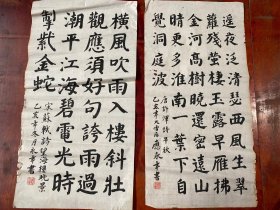 遥夜泛清瑟西風生翠
蘿殘螢棲玉露早雁拂
金河高樹曉還密遠山
晴更多淮南一葉下自
覺洞庭波
唐許渾詩早秋
乙亥年永章書
橫風吹雨入樓斜壯
觀應須好句誇雨過
潮平江海碧電光時
掣紫金蛇
宋蘇軾詩望海樓晚景
乙亥年冬月永章書